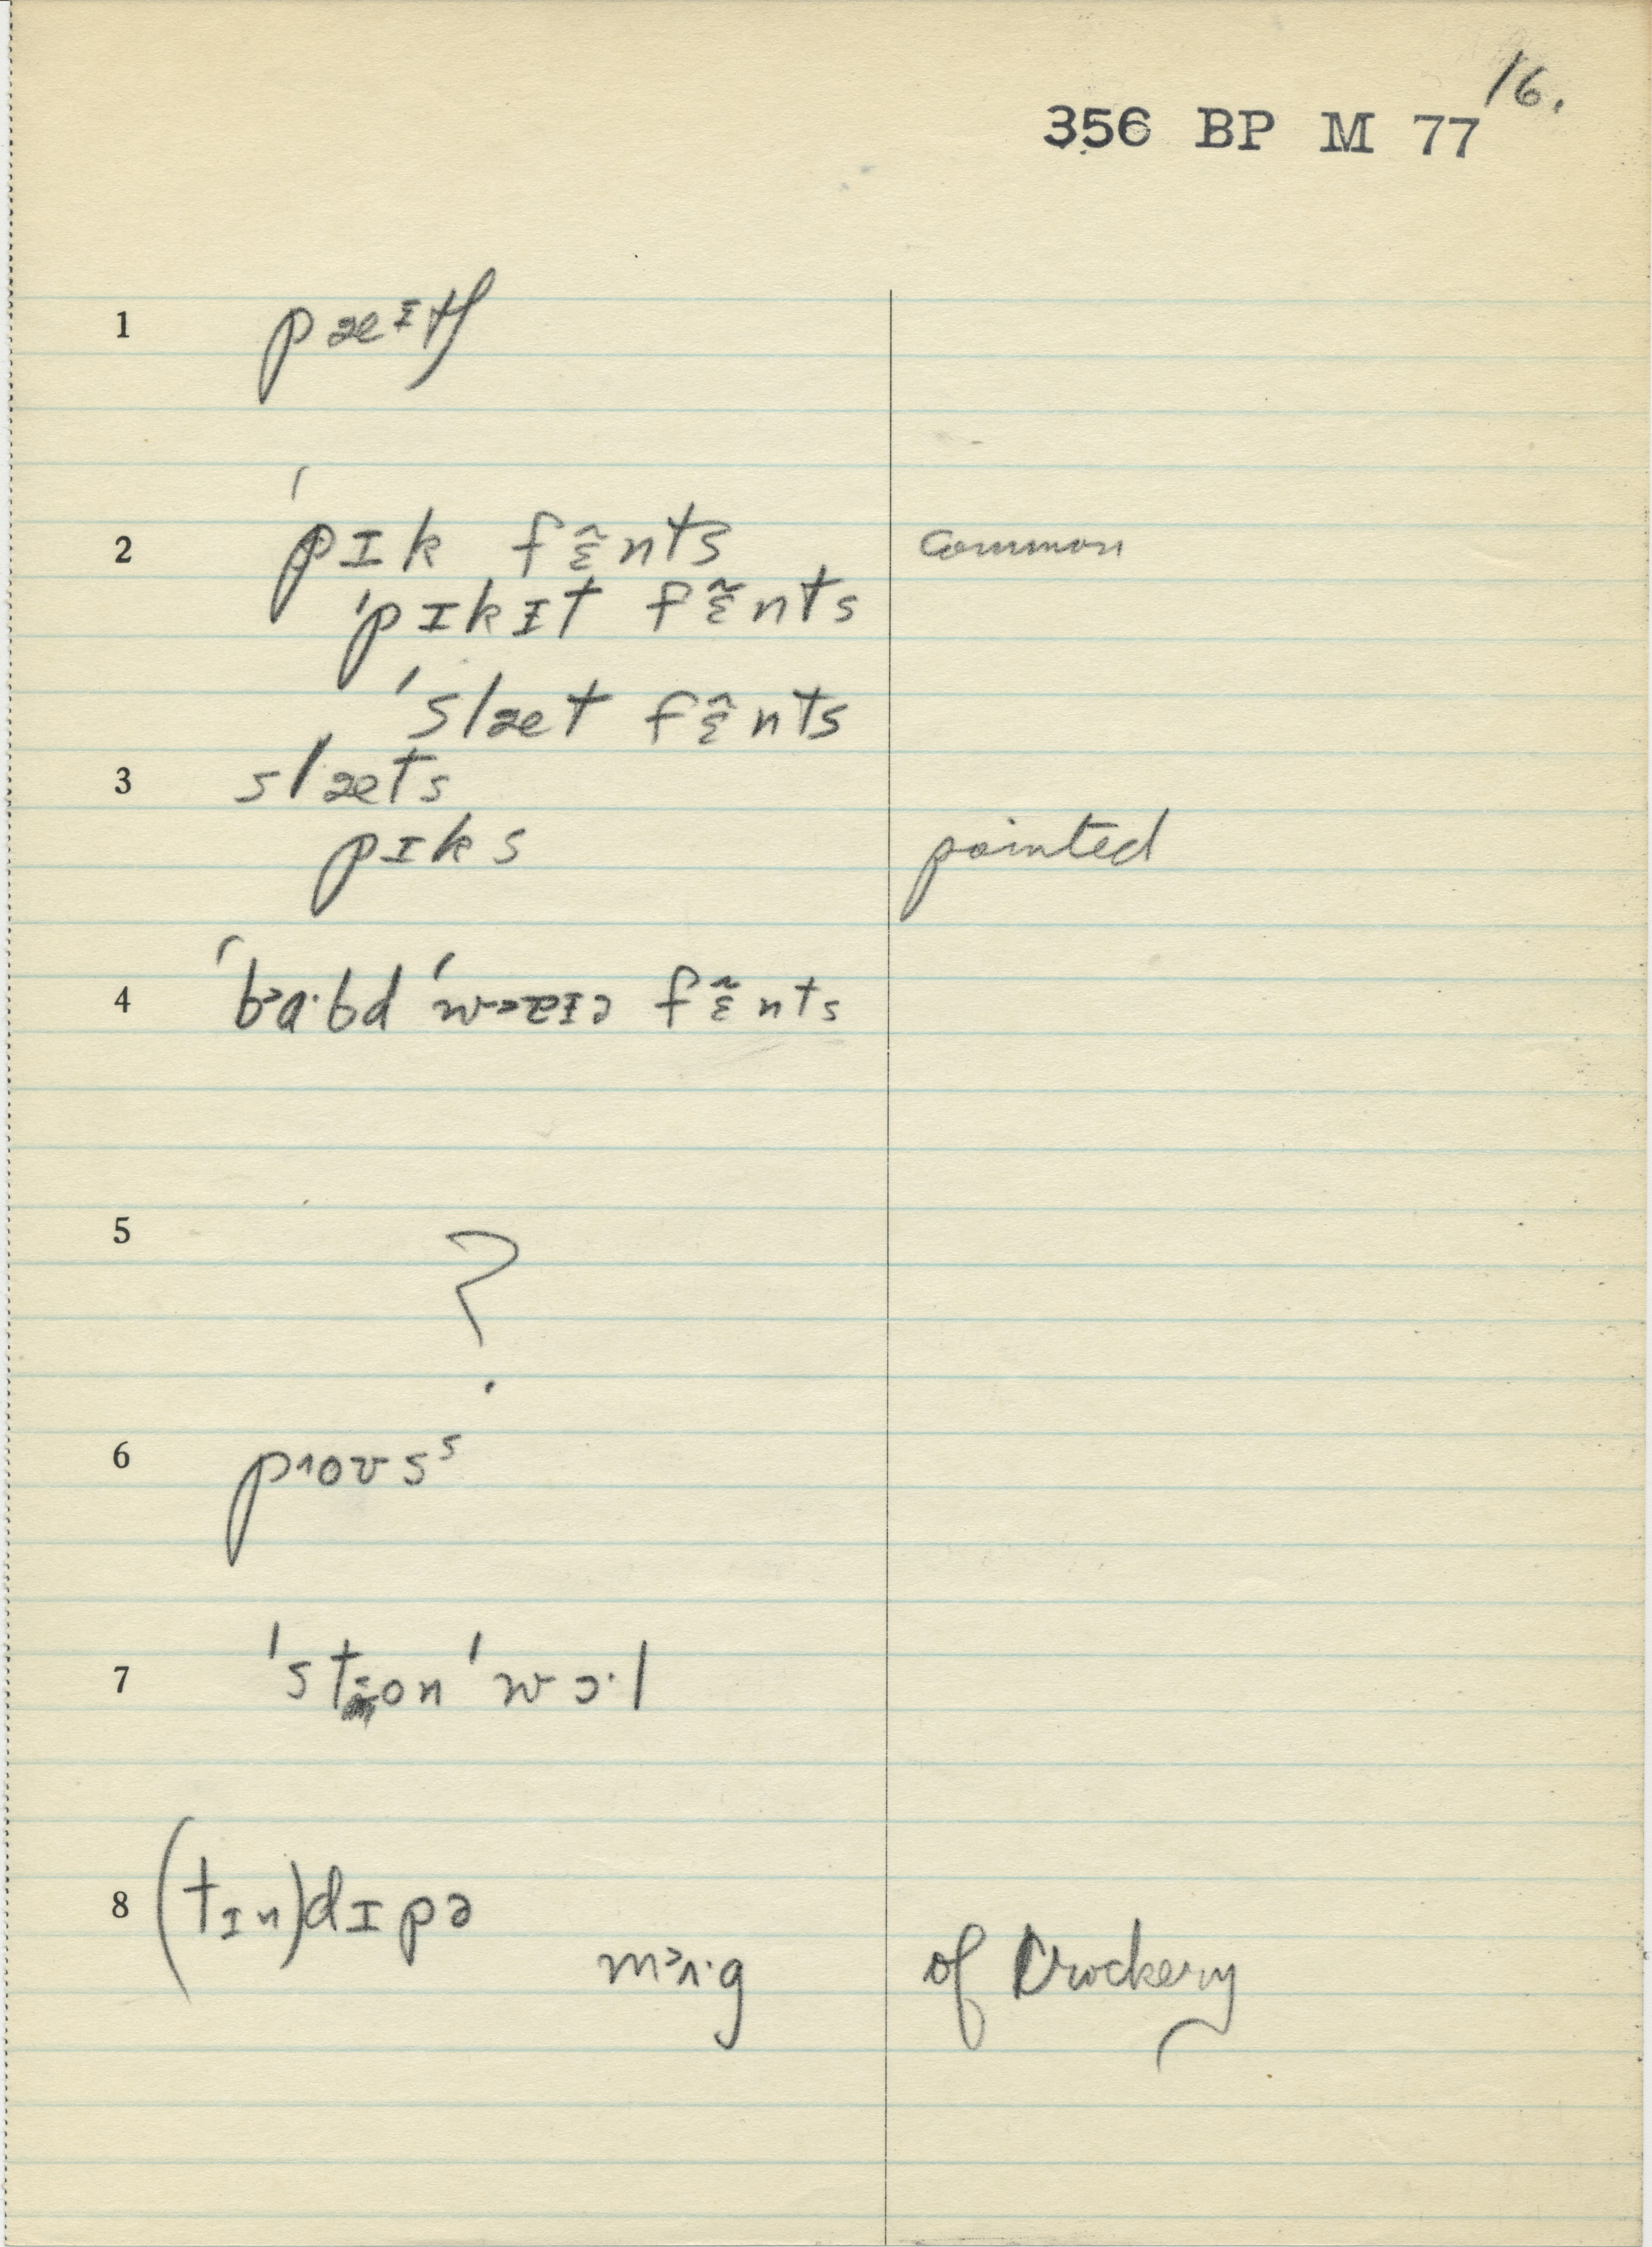 16.
356 BP M 77
1 pæᶦtʃ
2 ˈpɪk fɛ̃nts common
ˈpɪkɪt fɛ̃nts
ˈslæt fɛ̃nts
3 slæts
pɪks pointed
4 fɛ̃nts
5 ?
6
7 ˈwɔ·l
8 (tɪn)dɪpə
of Crockery